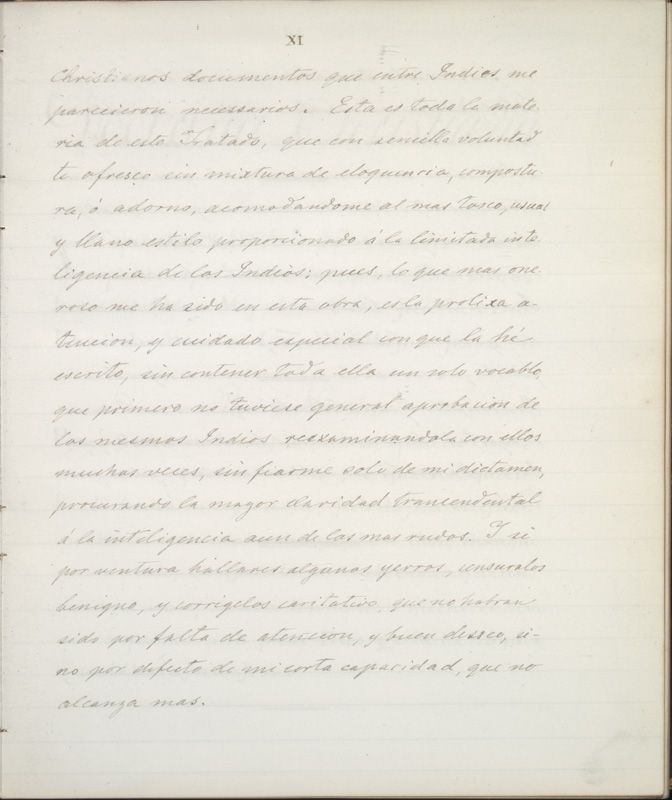 XI
Christianos documentos que entre Indios me
parecieron necessarios. Esta es toda la mate-
ria de este Tratado, que con sencilla voluntad
te ofresco sin mixtura de eloquencia, compostu-
ra, ó adorno, acomodandome al mas tosco, usual
y llano estilo proporcionado á la limitada inte-
ligencia de los Indios; pues, lo que mas one-
roso me ha sido en esta obra, es la prolixa a-
tencion, y cuidado especial con que la hé
escrito, sin contener toda ella un solo vocablo,
que primero no tuviese general aprobacion de
los mesmos Indios reexaminandola con ellos
muchas veces, sin fiarme solo de mi dictamen,
procurando la mayor claridad transcendental
á la inteligencia aun de los mas rudos. I si
por ventura hallares algunos yerros, censuralos
benigno, y corrigelos caritativo, que no habran
sido por falta de atencion, y buen desseo, si-
no por defecto de mi corta capacidad, que no
alcanza mas.